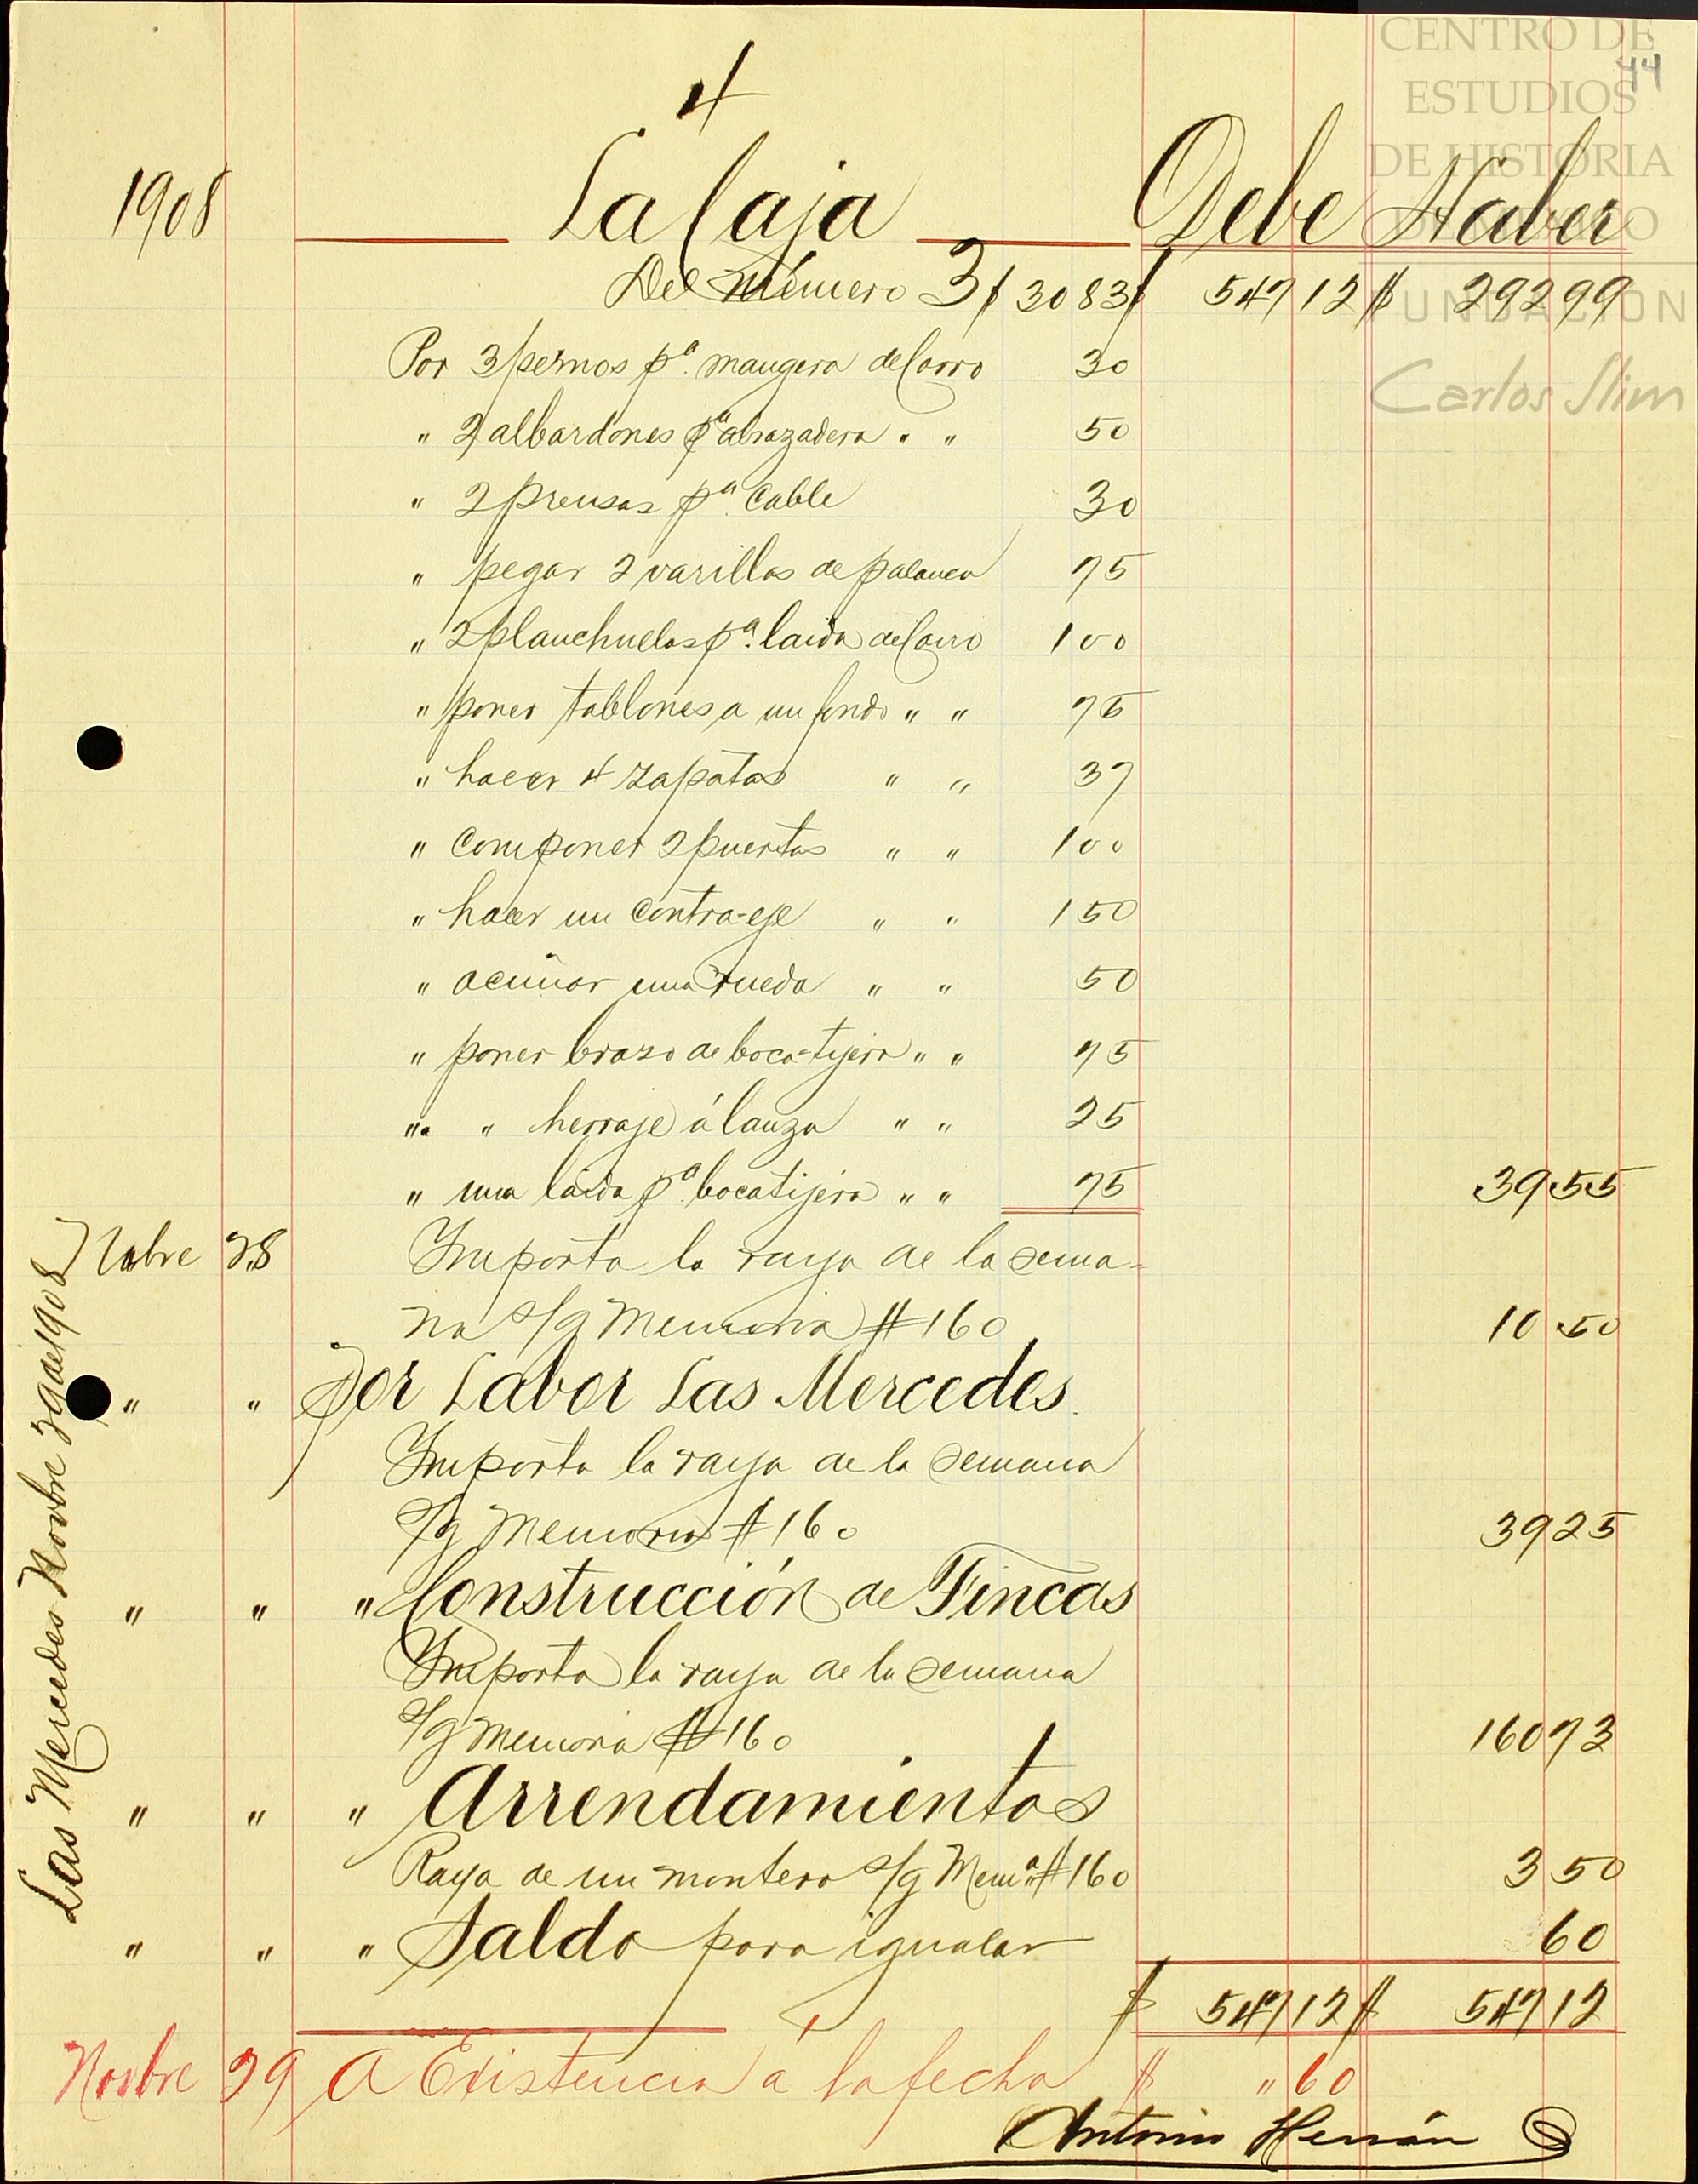 CENTRO DE
ESTUDIOS
DE HISTORIA
DE MÉXICO
FUNDACIÓN
Carlos Slim
44
4
1908 La Caja Debe Haber
Del número 3 $ 30 83 $ 547 12 $ 292 99
Por 3 pernos pª. mangera de Carro 30
" 2 albardones pª abrazadera " " 50
" 2 prensas pª. Cable 30
" pegar 2 varillas de palanca 75
" 2 planchuelas pª. laida de Carro 1 00
" poner tablones a un fondo " " 75
" hacer 4 zapatas " " 37
" componer 2 puertas " " 1 00
" hacer un contra-eje " " 1 50
" acuñar una rueda " " 50
" poner brazo de boca-tijera " " 75
" " herraje á lanza " " 25
" una laida pª. bocatijera " " 75 39 55
Nbre 28 Importa la raya de la sema-
na s/g Memoria # 160 10 50
" " Por Labor Las Mercedes.
Importa la raya de la semana
s/g Memoria # 160 39 25
" " " Construcción de Fincas
Importa la raya de la semana
s/g Memoria # 160 160 73
" " " Arrendamientos
Raya de un montero s/g Memª. # 160 3 50
" " " Saldo para igualar 60
$ 547 12 $ 547 12
Novbre 29 A Existencia á la fecha $ " 60
Antonio Herrán
Las Mercedes Novbre 29 de 1908